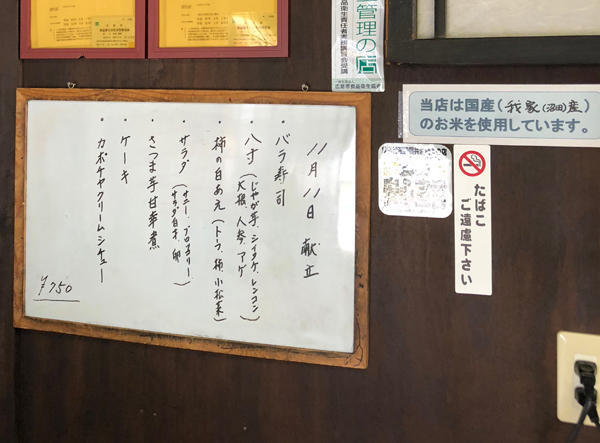 管理の店
品衛生責任者実務講習会受講
広島市食品衛生協会
当店は国産(我家(沼田)産)
のお米を使用しています。
たばこ
ご遠慮下さい
11月11日 献立
・バラ寿司
・八寸(じゃが芋、シイタケ、レンコン)
(大根、人参、アゲ
・柿の白あえ(トーフ、柿、小松菜)
・サラダ(サニー、ブロッコリー)
・さつま芋甘辛煮
・ケーキ
・カボチャクリームシチュー
¥750